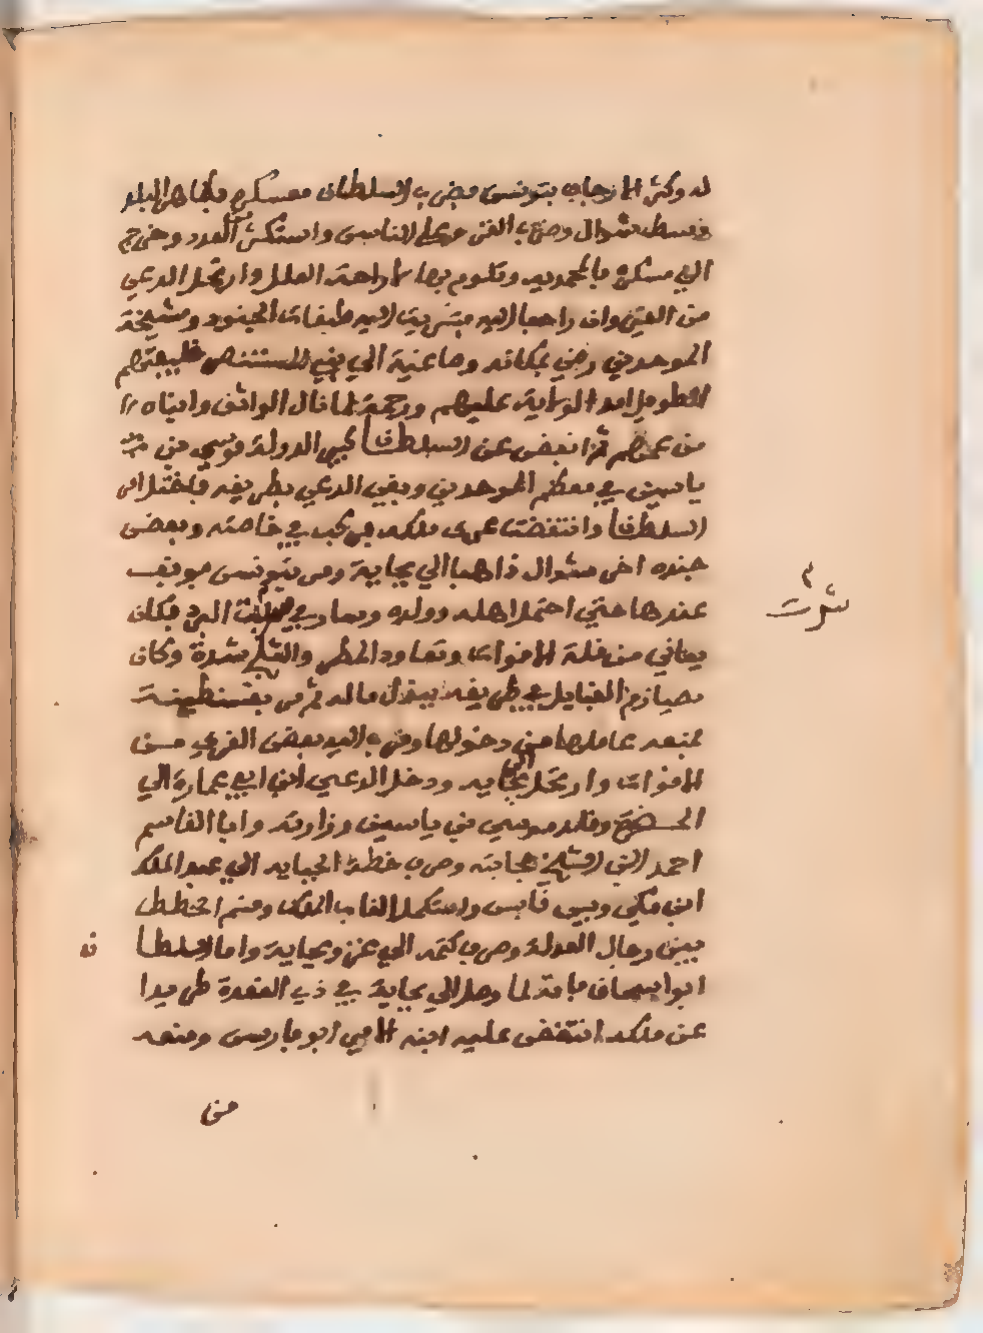 له وكثر الارجاف بتونس فضرب السلطان معسكره بظاهر البلد
وسط شوال وضرب الفرض على الناس واستكثر العدد وخرج
الى معسكره بالمحمدية وتلوم بها لازاحة العلل وارتحل الدعي
من القيروان زاحفا اليه فتسربت اليه طبقات الجنود ومشيخة
الموحدين رضى بمكانه وصاغية الى بني المستنصر خليفتهم
الطويل امد الولاية عليهم ورحمة لما نال الواثق وابناه
من عمهم ثم انفض عن السلطان كبير الدولة موسى بن
ياسين في معظم الموحدين ولقي الدعي بطريقه فاختل امر
السلطان وانتقضت عرى ملكه فركب في خاصته وبعض
جنده اخر شوال ذاهبا الى بجاية ومر بتونس فوقف
عندها حتى احتمل اهله وولده وسار في البرد فكان
يعاني من قلة الاقوات وتعاود المطر والثلج شدة وكان
يصانع القبايل في طريقه ببذل ماله ثم مر بقسنطينة
فمنعه عاملها من دخولها وقرب اليه بعض القرى من
الاقوات وارتحل الى بجاية ودخل الدعي ابن ابي عمارة الى
الحضرة وقلد موسى بن ياسين وزارته وابا القاسم
احمد ابن الشيخ حجابته وصرف خطة الجباية الى عبد الملك
ابن مكي رييس قابس واستكمل القاب الملك وقسم الخطط
بين رجال الدولة وصرف همه الى غزو بجاية واما السلطان
ابو اسحاق فانه لما وصل الى بجاية في ذي القعدة طريدا
عن ملكه انتقض عليه ابنه الامير ابو فارس ومنعه
من